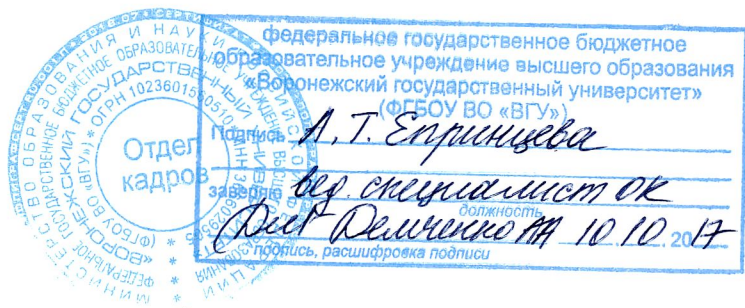 федеральное государственное бюджетное
образовательное учреждение высшего образования
«Воронежский государственный университет»
(ФГБОУ ВО «ВГУ»)
Подпись А.Т. Епринцева
заверяю вед. специалист ОК
должность
Демченко 10 10 2017
подпись, расшифровка подписи
МИНИСТЕРСТВО ОБРАЗОВАНИЯ И НАУКИ
ФЕДЕРАЛЬНОЕ ГОСУДАРСТВЕННОЕ БЮДЖЕТНОЕ ОБРАЗОВАТЕЛЬНОЕ УЧРЕЖДЕНИЕ
«ВОРОНЕЖСКИЙ ГОСУДАРСТВЕННЫЙ
(ФГБОУ ВО «ВГУ») * ОГРН
Отдел
кадров